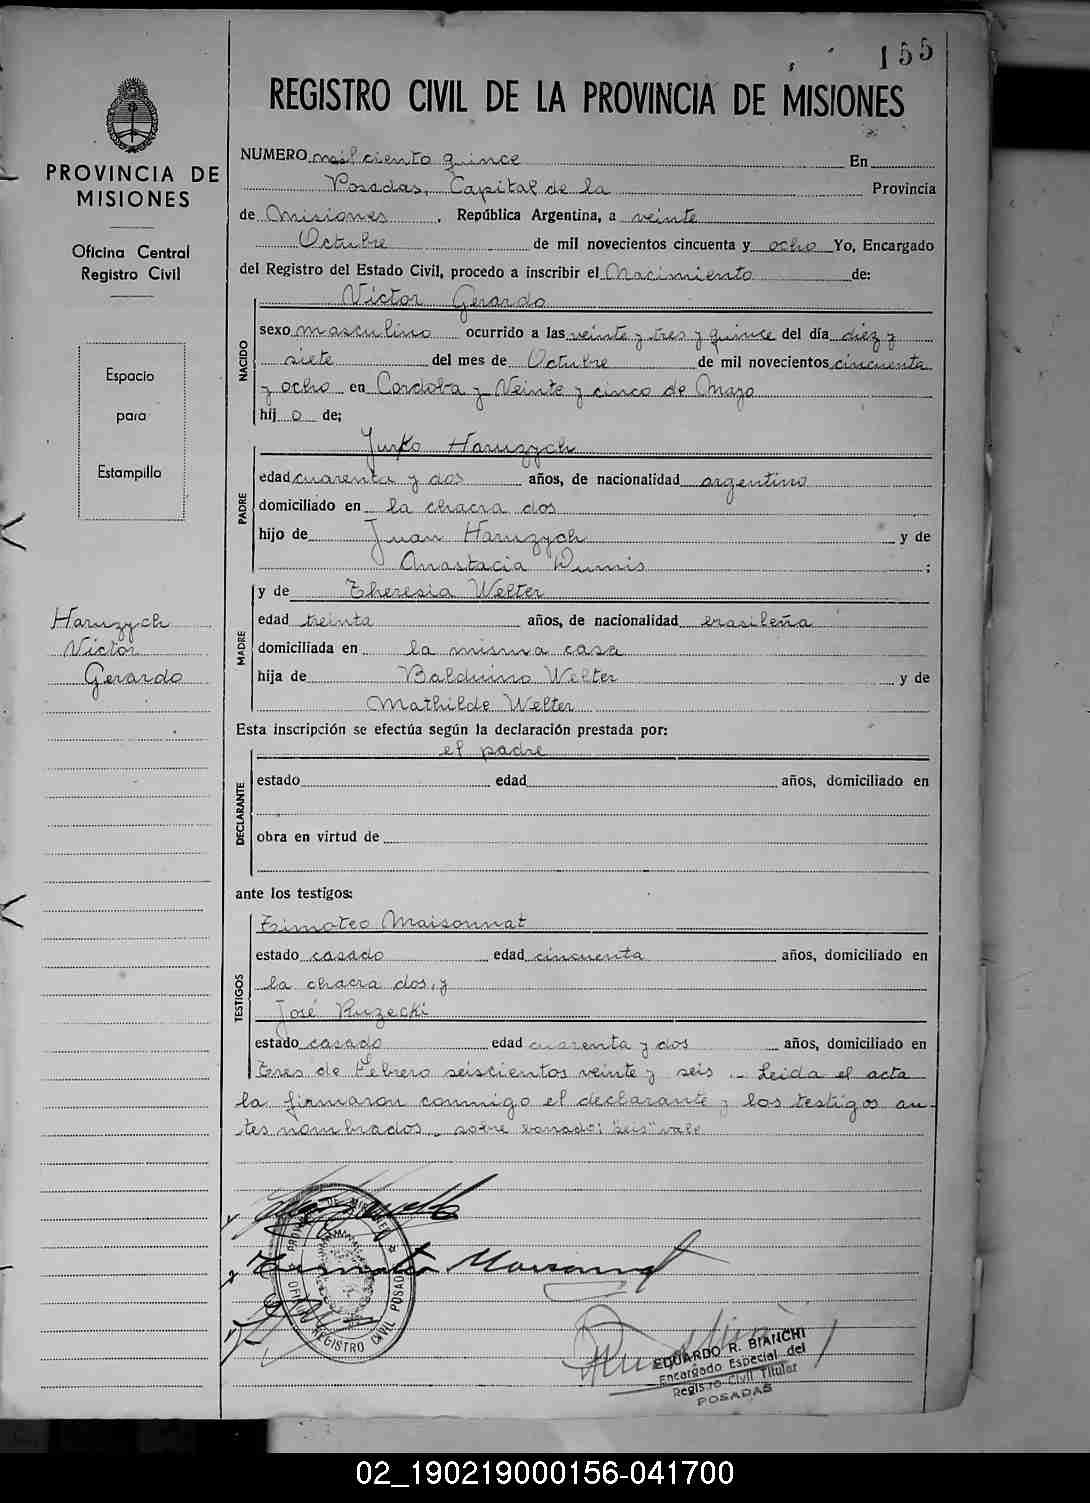 155
REGISTRO CIVIL DE LA PROVINCIA DE MISIONES
PROVINCIA DE
MISIONES
Oficina Central
Registro Civil
Espacio
para
Estampilla
Haruzych
Victor
Gerardo
NUMERO mil ciento quince En
Posadas, Capital de la Provincia
de Misiones, República Argentina, a veinte
Octubre de mil novecientos cincuenta y ocho Yo, Encargado
del Registro del Estado Civil, procedo a inscribir el Nacimiento de:
NACIDO
Victor Gerardo
sexo masculino ocurrido a las veinte y tres y quince del día diez y
siete del mes de Octubre de mil novecientos cincuenta
y ocho en Cordoba y Veinte y cinco de Mayo
hij o de;
PADRE
Jurko Haruzych
edad cuarenta y dos años, de nacionalidad argentino
domiciliado en la chacra dos
hijo de Juan Haruzych y de
Anastacia ;
MADRE
y de Theresia Welter
edad treinta años, de nacionalidad brasileña
domiciliada en la misma casa
hija de Balduino Welter y de
Mathilde Welter
Esta inscripción se efectúa según la declaración prestada por:
DECLARANTE
el padre
estado edad años, domiciliado en
obra en virtud de
ante los testigos:
TESTIGOS
Timoteo Maisonnat
estado casado edad cincuenta años, domiciliado en
la chacra dos, y
José Ruzecki
estado casado edad cuarenta y dos años, domiciliado en
Tres de Febrero seiscientos veinte y seis .- Leida el acta
la firmaron conmigo el declarante y los testigos an-
tes nombrados. sobre borrado: "seis" vale
PROVINCIA DE MISIONES
OFICINA REGISTRO CIVIL POSADAS
EDUARDO R. BIANCHI
Encargado Especial del
Registro Civil Titular
POSADAS
02_190219000156-041700